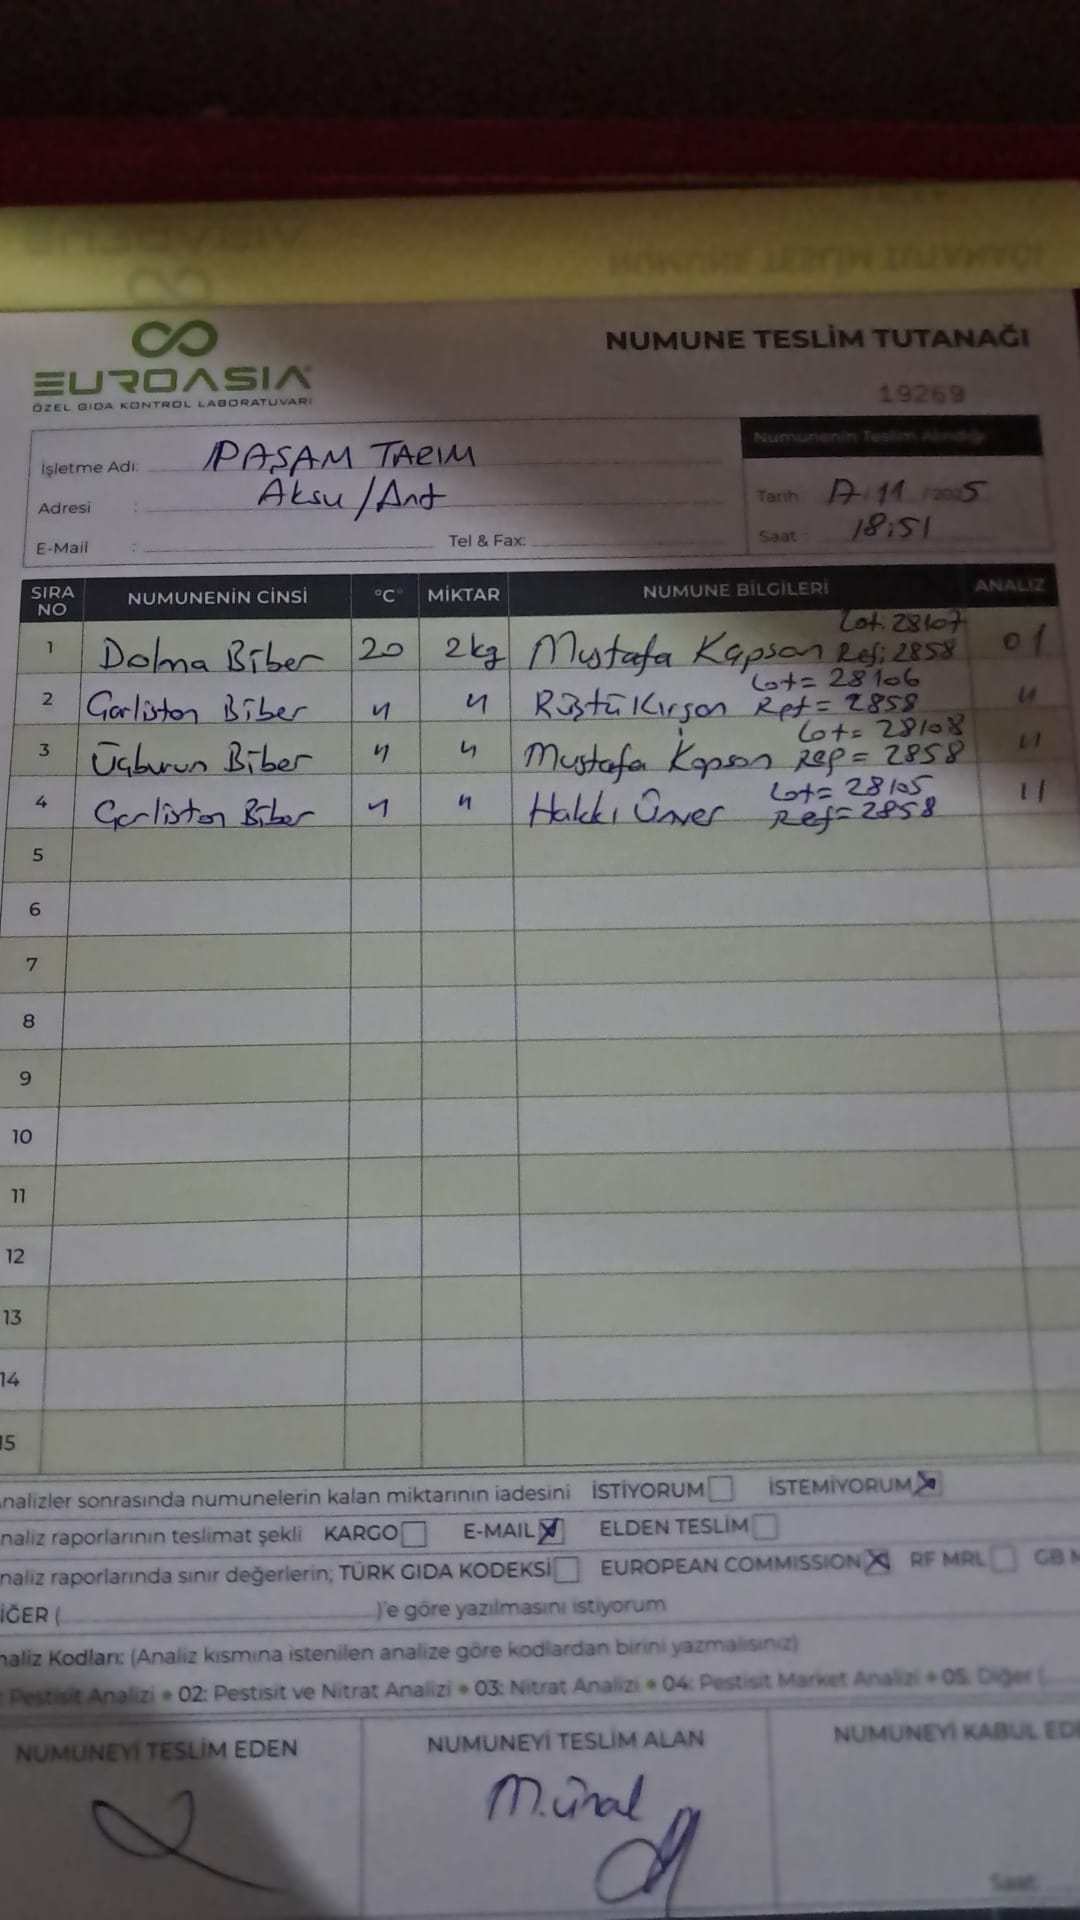 EUROASIA
ÖZEL GIDA KONTROL LABORATUVARI
NUMUNE TESLİM TUTANAĞI
19269
Numunenin Teslim Alındığı
İşletme Adı: PAŞAM TARIM
Adresi : Aksu/Ant
E-Mail : Tel & Fax:
Tarih 17/11/2025
Saat : 18:51
SIRA NO NUMUNENİN CİNSİ °C MİKTAR NUMUNE BİLGİLERİ ANALİZ
1 Dolma Biber 20 2kg Mustafa Kapsan Lot: 28107 Ref: 2858 01
2 Garliston Biber " " Rüştü Kırşan Lot= 28106 Ref= 2858 "
3 Üçburun Biber " " Mustafa Kapsan Lot= 28108 Ref= 2858 "
4 Garliston Biber " " Hakkı Ünver Lot= 28105 Ref= 2858 "
5
6
7
8
9
10
11
12
13
14
15
Analizler sonrasında numunelerin kalan miktarının iadesini İSTİYORUM İSTEMİYORUM
naliz raporlarının teslimat şekli KARGO E-MAIL ELDEN TESLİM
naliz raporlarında sınır değerlerin; TÜRK GIDA KODEKSİ EUROPEAN COMMISSION RF MRL GB M
İĞER ( )'e göre yazılmasını istiyorum
naliz Kodları: (Analiz kısmına istenilen analize göre kodlardan birini yazmalısınız)
: Pestisit Analizi • 02: Pestisit ve Nitrat Analizi • 03: Nitrat Analizi • 04: Pestisit Market Analizi • 05: Diğer (
NUMUNEYİ TESLİM EDEN NUMUNEYİ TESLİM ALAN NUMUNEYİ KABUL EDE
M. Ünal
Saat: